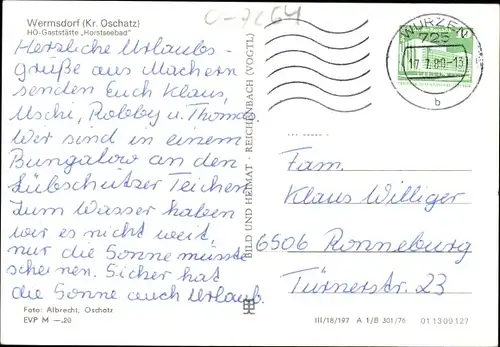 Wermsdorf (Kr. Oschatz)
HO-Gaststätte „Horstseebad"
Herzliche Urlaubs-
grüße aus Machern
senden Euch Klaus,
Uschi, Robby u. Thomas.
Wir sind in einem
Bungalow an den
Lübschützer Teichen
Zum Wasser haben
wir es nicht weit,
nur die Sonne müsste
scheinen. Sicher hat
die Sonne auch Urlaub.
Foto: Albrecht, Oschatz
EVP M —.20
BILD UND HEIMAT · REICHENBACH (VOGTL)
WURZEN
725
17.7.80-13
b
Fam.
Klaus Williger
6506 Ronneburg
Türnerstr. 23
III/18/197 A 1/B 301/76 01 13 09 127